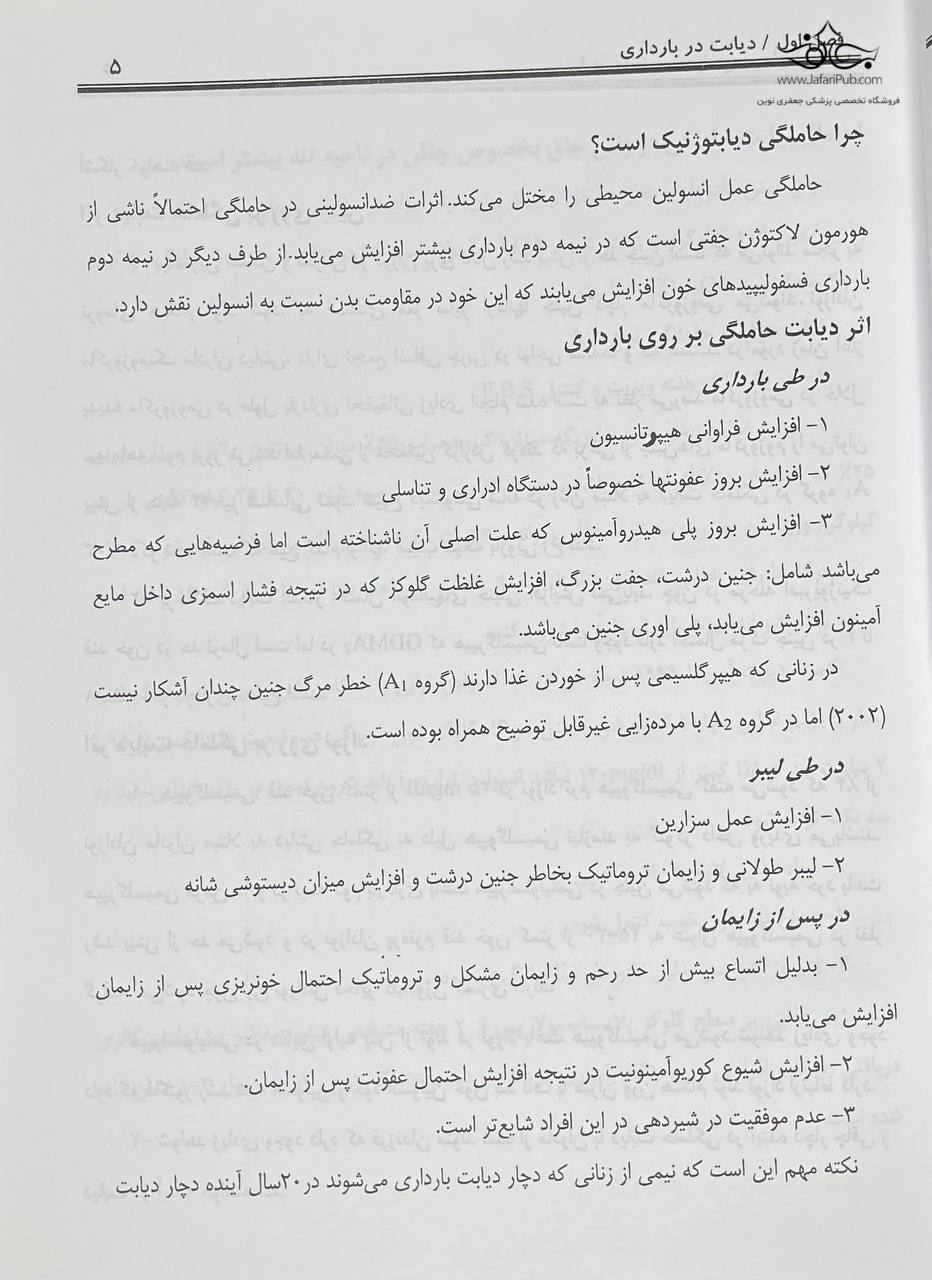 فصل اول / دیابت در بارداری
۵
www.JafariPub.com
فروشگاه تخصصی پزشکی جعفری نوین
چرا حاملگی دیابتوژنیک است؟
حاملگی عمل انسولین محیطی را مختل می‌کند. اثرات ضدانسولینی در حاملگی احتمالاً ناشی از
هورمون لاکتوژن جفتی است که در نیمه دوم بارداری بیشتر افزایش می‌یابد. از طرف دیگر در نیمه دوم
بارداری فسفولیپیدهای خون افزایش می‌یابند که این خود در مقاومت بدن نسبت به انسولین نقش دارد.
اثر دیابت حاملگی بر روی بارداری
در طی بارداری
۱- افزایش فراوانی هیپرتانسیون
۲- افزایش بروز عفونتها خصوصاً در دستگاه ادراری و تناسلی
۳- افزایش بروز پلی هیدروآمینوس که علت اصلی آن ناشناخته است اما فرضیه‌هایی که مطرح
می‌باشد شامل: جنین درشت، جفت بزرگ، افزایش غلظت گلوکز که در نتیجه فشار اسمزی داخل مایع
آمینون افزایش می‌یابد، پلی اوری جنین می‌باشد.
در زنانی که هیپرگلسیمی پس از خوردن غذا دارند (گروه A1) خطر مرگ جنین چندان آشکار نیست
(۲۰۰۲) اما در گروه A2 با مرده‌زایی غیرقابل توضیح همراه بوده است.
در طی لیبر
۱- افزایش عمل سزارین
۲- لیبر طولانی و زایمان تروماتیک بخاطر جنین درشت و افزایش میزان دیستوشی شانه
در پس از زایمان
۱- بدلیل اتساع بیش از حد رحم و زایمان مشکل و تروماتیک احتمال خونریزی پس از زایمان
افزایش می‌یابد.
۲- افزایش شیوع کوریوآمینونیت در نتیجه افزایش احتمال عفونت پس از زایمان.
۳- عدم موفقیت در شیردهی در این افراد شایع‌تر است.
نکته مهم این است که نیمی از زنانی که دچار دیابت بارداری می‌شوند در۲۰سال آینده دچار دیابت